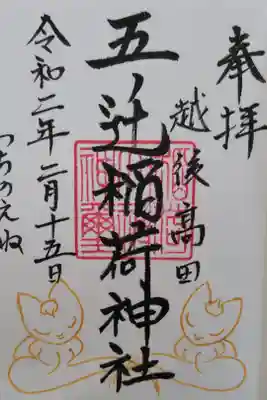 奉拝
越後高田
五ノ辻稲荷神社
令和二年二月十五日
つちのえね